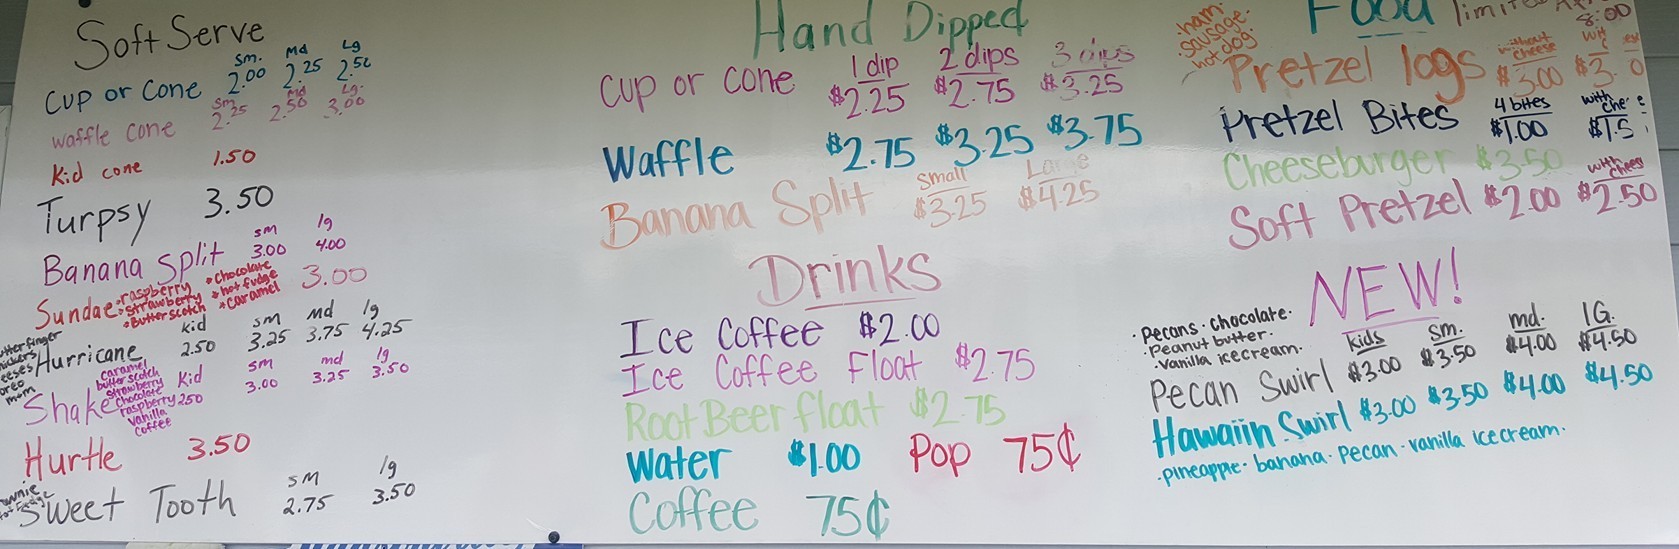 Soft Serve
sm. md Lg
Cup or Cone 2.00 2.25 2.50
sm md Lg.
waffle cone 2.25 2.50 3.00
Kid cone 1.50
Turpsy 3.50
sm lg
Banana Split 3.00 4.00
Sundae 3.00
• raspberry • chocolate
• strawberry • hot fudge
• Butterscotch • caramel
kid sm md lg
Hurricane 2.50 3.25 3.75 4.25
oreo
Kid sm md lg
Shake 250 3.00 3.25 3.50
caramel
butterscotch
strawberry
chocolate
raspberry
vanilla
coffee
Hurtle 3.50
sm lg
Sweet Tooth 2.75 3.50
Hand Dipped
1 dip 2 dips 3 dips
Cup or cone $2.25 $2.75 $3.25
Waffle $2.75 $3.25 $3.75
Small Large
Banana Split $3.25 $4.25
Drinks
Ice Coffee $2.00
Ice Coffee Float $2.75
Root Beer float $2.75
Water $1.00 Pop 75¢
Coffee 75¢
Food
8:00
• ham•
• sausage•
hot dog•
without
cheese
Pretzel logs $3.00
4 bites with
Pretzel Bites $1.00
Cheeseburger $3.50
with
Soft Pretzel $2.00 $2.50
NEW!
• Pecans • Chocolate•
• Peanut butter•
• Vanilla icecream•
Kids sm. md. lG.
Pecan Swirl $3.00 $3.50 $4.00 $4.50
Hawaiin Swirl $3.00 $3.50 $4.00 $4.50
• pineapple • banana • Pecan • vanilla icecream•